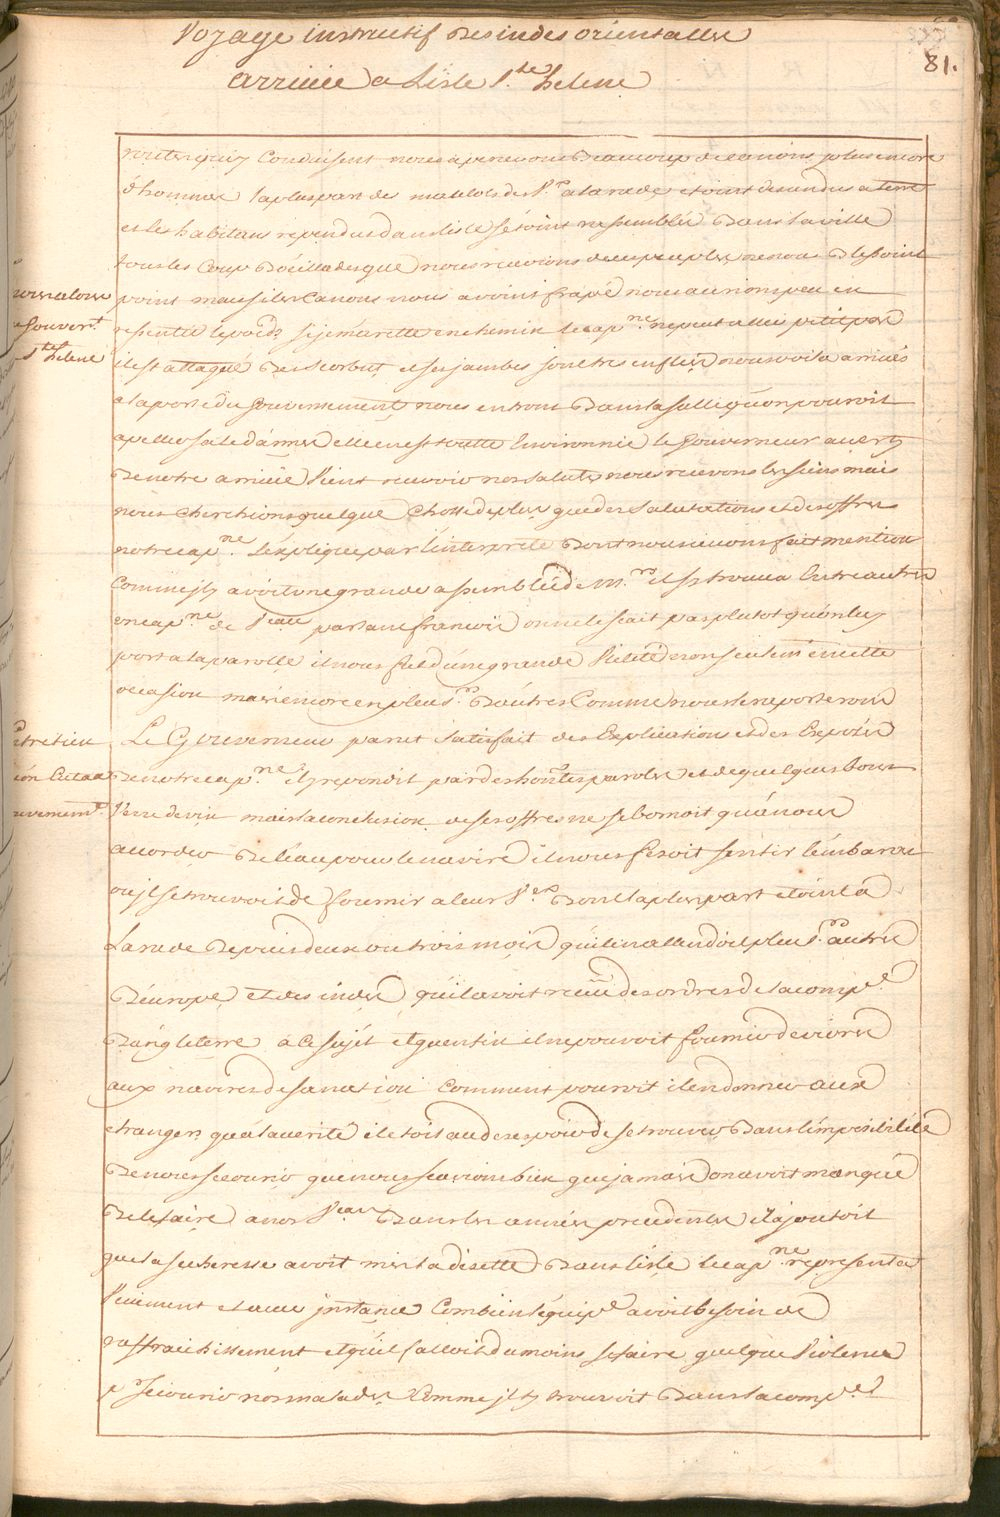 Voyage instructif des indes orientalles
arrivée a L'isle S.te helene
81.
routes qui y conduisent nous apercevons beaucoup de canons plus encore
d'hommes la pluspart des matelots des V.x a la rade etoint desendus a terre
et les habitans rependus dans l'isle s'étoint rassemblés dans la ville
tous les coup d'oeillades que nous recevions de ce peuples ne nous blesoint
point mais si les canons nous avoint frapé nous aurions peu en
resentir le poids si je m'arrette en chemin le cap.ne ne peut aller petit pas
il est attaqué du scorbut et ses jambes sont tres enflés nous voila arrivés
a la porte du Gouvernement nous entrons dans la salle qu'on pouroit
apeller sale d'armes elle en est toutte Environnée le Gouverneur averty
de notre arrivée Vient recevoir nos saluts nous recevons les siens mais
nous cherchions quelque chosse de plus que des salutations et des offres
notre cap.ne s'explique par l'interprete dont nous avons fait mention
comme il y avoit une grande assemblée de M.rs il s'y trouva Entre autres
un cap.ne de V.eau parlant francois on ne le scait pas plutot qu'on luy
porta la parolle il nous fut d'une grande Utilité non seulem.t en cette
occasion mais encore en plus.rs d'autres comme nous le raporterons
Le Gouverneur parut satisfait des Explications et des Exposés
de notre cap.ne il y repondit par des honetes paroles et de quelques bons
verre de vin mais la conclusion de ses offres ne se bornoit qu'a nous
accorder de l'eau pour le navire il nous fesoit sentir l'embaras
ou il se trouvoit de fournir a leur V.x dont la plus part etoint a
la rade depuis deux ou trois mois qu'il en attendoit plus.rs autres
d'europe et des indes qu'il avoit reçu des ordres de la comp.e
d'angleterre a ce sujét et quentin il ne pouvoit fournir de vivres
aux navires de sa nation comment pouroit il en donner aux
etrangers qu'a la verité il etoit au desespoir de se trouver dans l'imposibilité
de nous secourir que nous scavions bien que jamais on avoit manqué
de le faire a nos V.eau dans les années precedentes il ajoutoit
que la secheresse avoit mis la disette dans l'isle le cap.ne representa
vivement et avec instance combien l'équip.e avoit besoin de
raffraichissement et qu'il falloit du moins se faire quelque violence
p.r secourir nos malades comme il s'y trouvoit dans la comp.e
Gouver.t
S.te helene